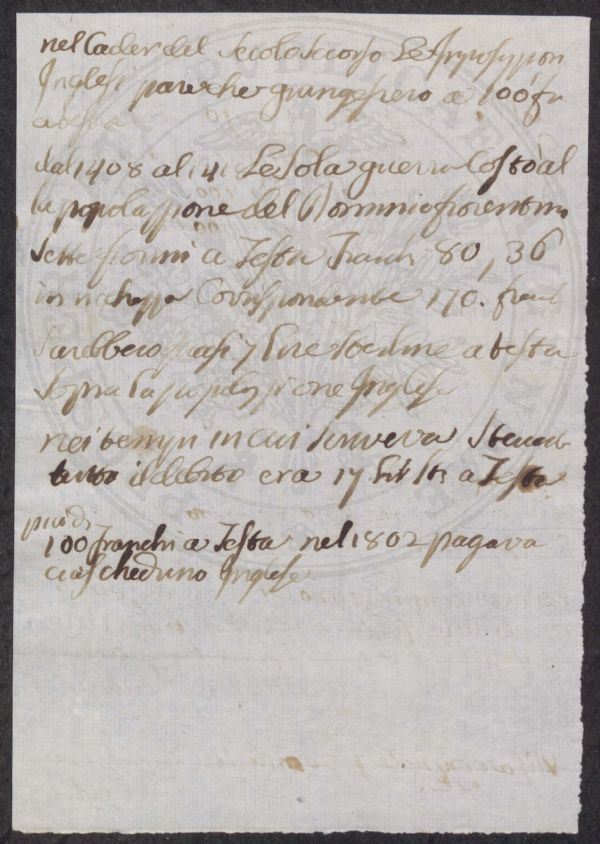 nel Cader del Secolo Scorso Le Imposizion
Inglesi pare che giungessero a 100 fr
a testa
dal 1408 al 141 Le Sola guerra Costò al
la popolazzione del Dominio fiorentino
Sette fiorini a Testa Franchi 80, 36
in richezza Corrispondente 170. franchi
Sarebbero quasi 7 Lire sterline a testa
Sopra La popolazzione Inglese
nei tempi in cui scriveva Steuart
tutto il debito era 17 a Testa
piu di
100 franchi a Testa nel 1802 pagava
ciascheduno Inglese